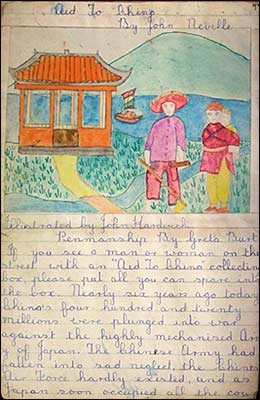 Aid To China
By John Neville
Illustrated by John Hardwich
Penmanship By Greta Burt
If you see a man or woman on the
street with an "Aid To China" collecting
box, please put all you can spare into
the box. Nearly six years ago today
China's four hundred and twenty
millions were plunged into war
against the highly mechanised Arm
y of Japan. The Chinese Army had
fallen into sad neglect, the Chinese
Air Force hardly existed, and as
Japan soon occupied all the